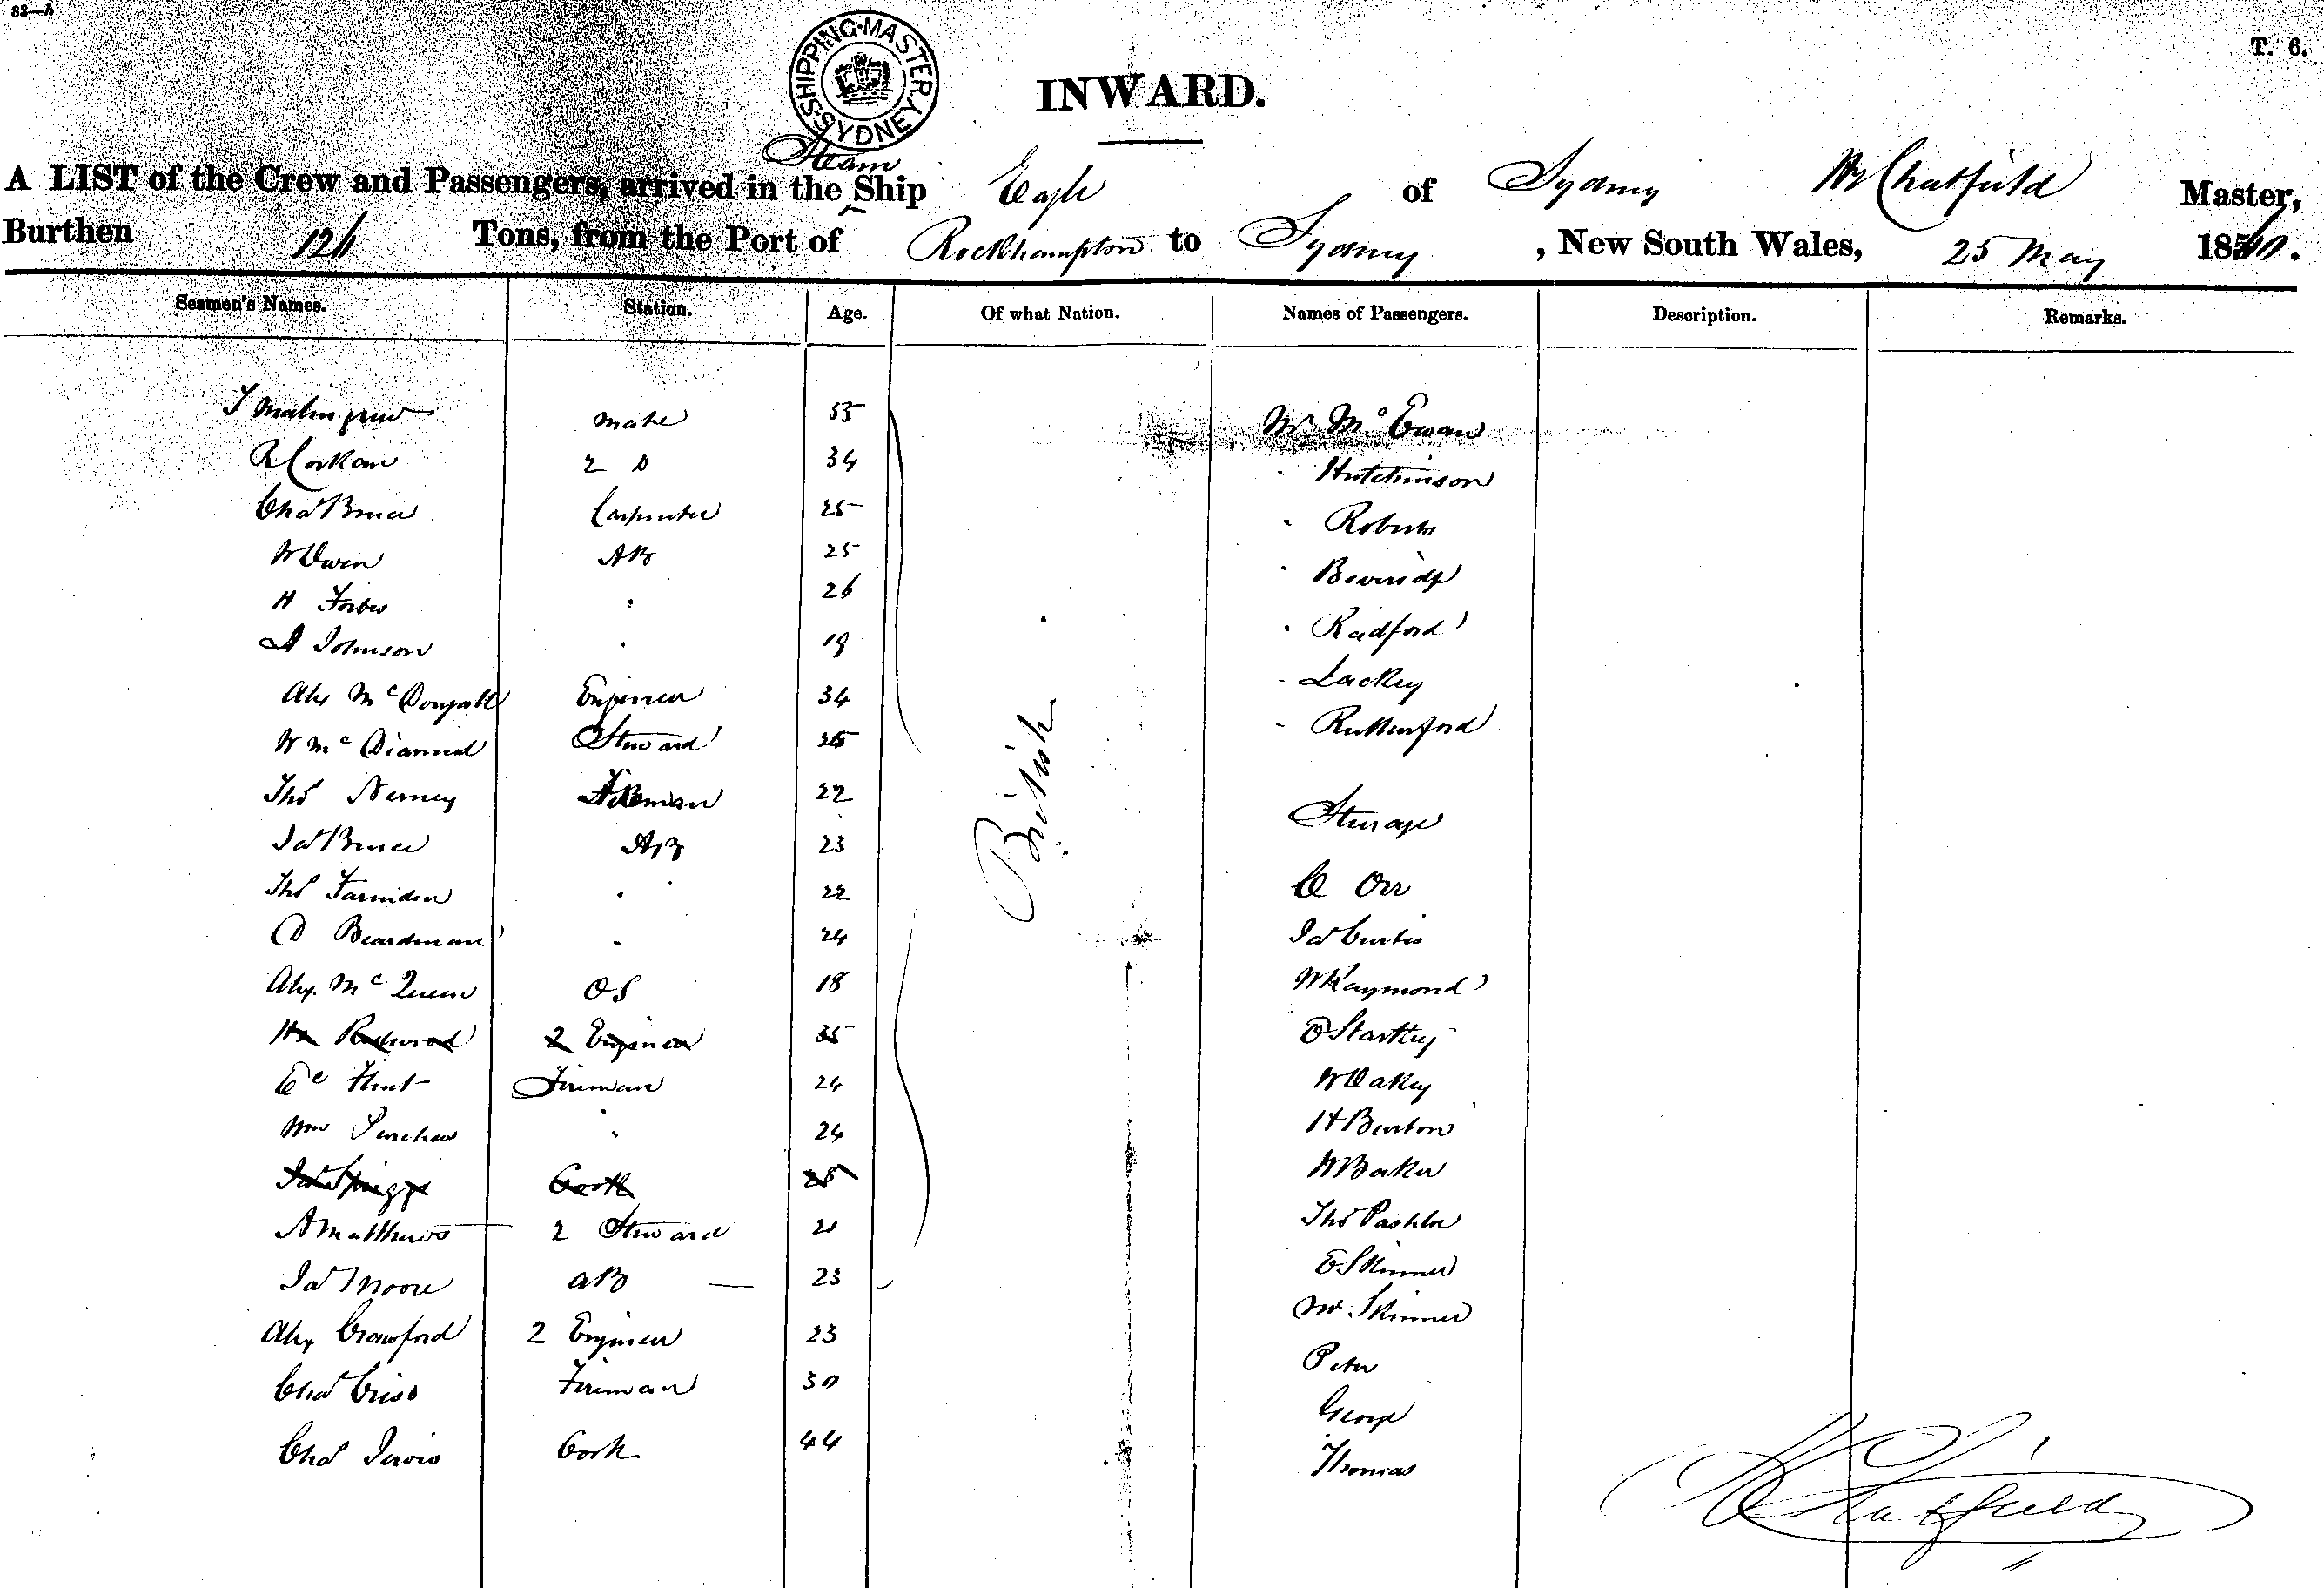 83—A
T. 6.
SHIPPING MASTER SYDNEY
INWARD.
A LIST of the Crew and Passengers, arrived in the Steam Ship Eagle of Sydney Wm Chatfield Master,
Burthen 126 Tons, from the Port of Rockhampton to Sydney, New South Wales, 25 May 18
Seamen's Names. Station. Age. Of what Nation. Names of Passengers. Description. Remarks.
British
T mate 55 Mr McEwan
R Corkan 2 D 34 " Hutchinson
Chas Bruce Carpenter 25 " Roberts
W Owen AB 25 " Beveridge
H Forbes " 26 " Radford
Johnson " 19 " Lackey
Alex McDougall Engineer 34 " Rutherford
W McDiarmid Steward 25
Thos Nerney Fireman 22 Steerage
Jas Bruce AB 23
Thos Farnden " 22 C Orr
D Beardman " 24 Jas Curtis
Alex. McQueen OS 18 W Raymond
Hy Redwood 2 Engineer 35 O Starkey
Flint Fireman 24 W Oakey
Wm Purches " 24 H Burton
Jas Spriggs Cook 28 W Baker
A Matthews 2 Steward 21 Thos Pashler
Jas Moore AB 23 E Skinner
Alex Crawford 2 Engineer 23 Mr. Skinner
Chas Criss Fireman 30 Peter
Chas Jervis Cook 44 George
Thomas
Chatfield